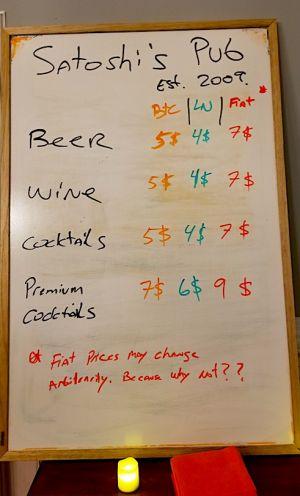 Satoshi's Pub
Est. 2009.
BTC | LN | Fiat *
Beer 5$ 4$ 7$
Wine 5$ 4$ 7$
Cocktails 5$ 4$ 7$
Premium 7$ 6$ 9$
Cocktails
* Fiat Prices may change
Arbitrarily. Because why not??